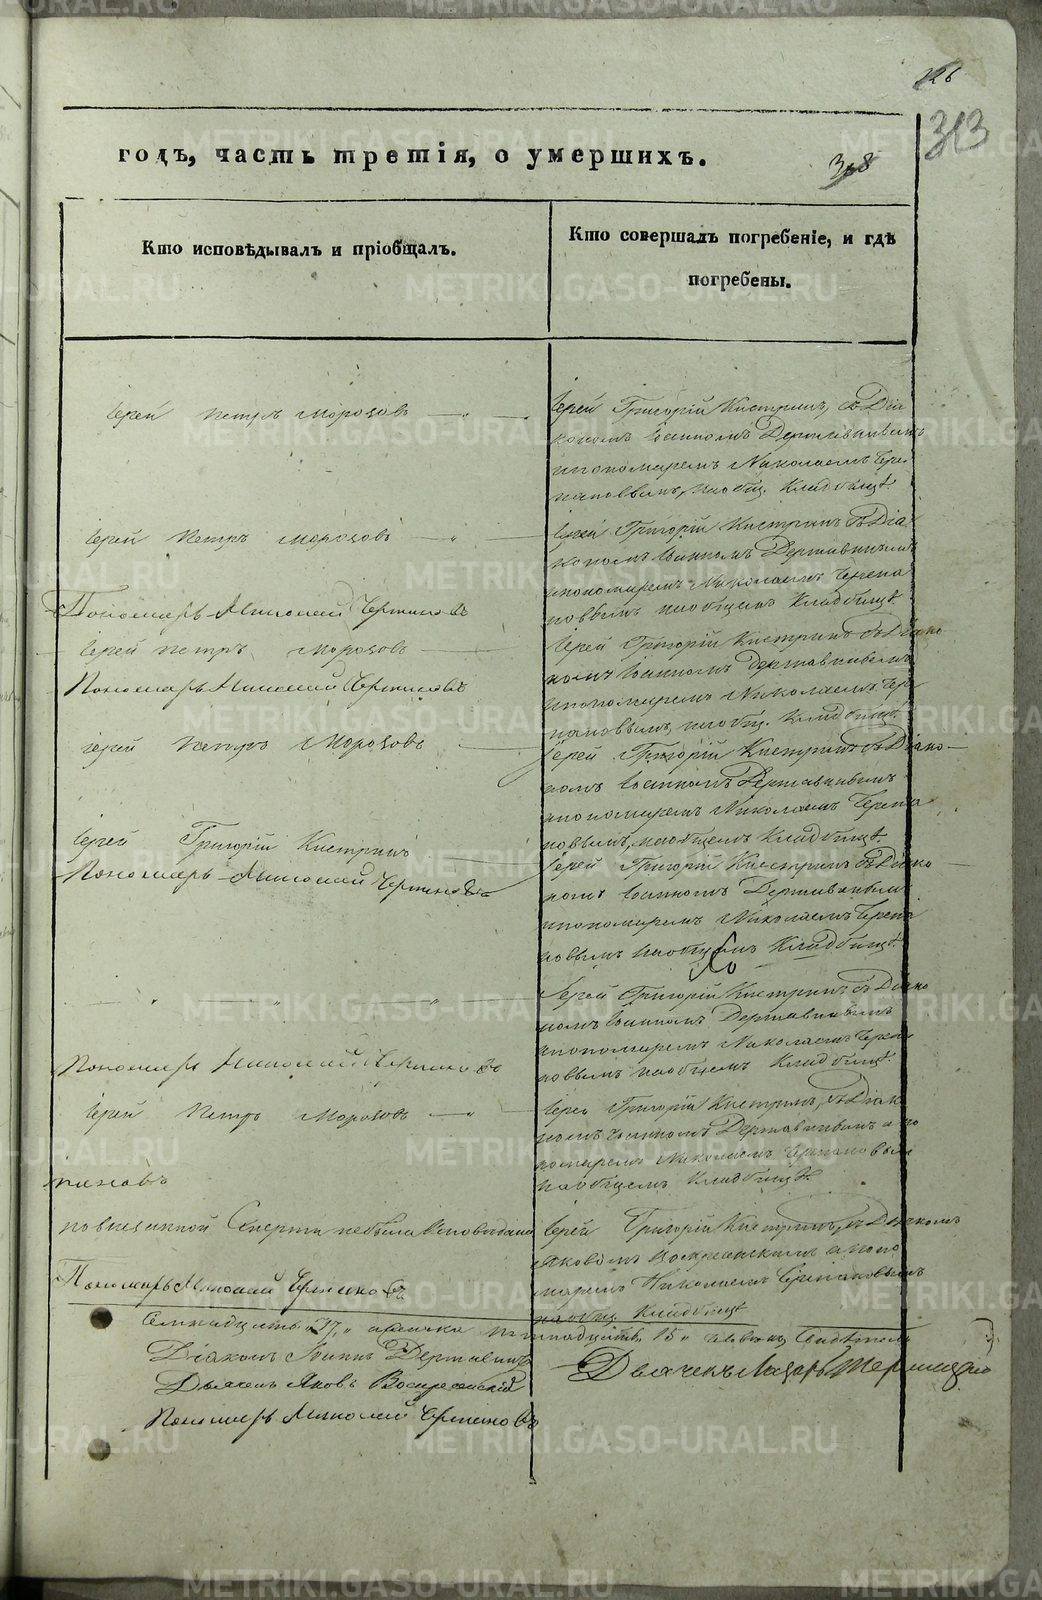 313
годъ, часть третія, о умершихъ.
308
Кто исповѣдывалъ и пріобщалъ.
Кто совершалъ погребеніе, и гдѣ
погребены.
Іерей Петръ Морозовъ
Іерей Григорій Кистринъ, съ Діа
кономъ Іоанномъ Державинымъ
и пономаремъ Николаемъ Чере
пановымъ, на общ. Кладбищѣ.
Іерей Петръ Морозовъ
Іерей Григорій Кистринъ съ Діа
кономъ Іоанномъ Державинымъ
и пономаремъ Николаемъ Черепа
новымъ на общемъ Кладбищѣ.
Пономарь Николай Черепановъ
Іерей Петръ Морозовъ
Іерей Григорій Кистринъ съ Діако
номъ Іоанномъ Державинымъ
и пономаремъ Николаемъ Чере
пановымъ, на общ. Кладбищѣ.
Пономарь Николай Черепановъ
Іерей Петръ Морозовъ
Іерей Григорій Кистринъ съ Діако
номъ Іоанномъ Державинымъ
и пономаремъ Николаемъ Черепа
новымъ, на общемъ Кладбищѣ.
Іерей Григорій Кистринъ
Іерей Григорій Кистринъ съ Діако
номъ Іоанномъ Державинымъ
и пономаремъ Николаемъ Черепа
новымъ на общемъ Кладбищѣ.
Пономарь Николай Черепановъ
Іерей Григорій Кистринъ съ Діако
номъ Іоанномъ Державинымъ
и пономаремъ Николаемъ Черепа
новымъ на общемъ Кладбищѣ.
Пономарь Николай Черепановъ
Іерей Петръ Морозовъ
Іерей Григорій Кистринъ, съ Діако
номъ Іоанномъ Державинымъ и по
номаремъ Николаемъ Черепановымъ
на общемъ Кладбищѣ.
пановъ
по внезапной Смерти не была Исповѣдана
Іерей Григорій Кистринъ, съ Дьячкомъ
Яковомъ Воскресенскимъ и поно
маремъ Николаемъ Черепановымъ
на общ. Кладбищѣ
Пономарь Николай Черепановъ
Семнадцать 17, а женска пятнадцать 15
Діаконъ Іоаннъ Державинъ
Дьячекъ Яковъ Воскресенскій
Пономарь Николай Черепановъ
Дьячекъ Лазарь
METRIKI.GASO-URAL.RU